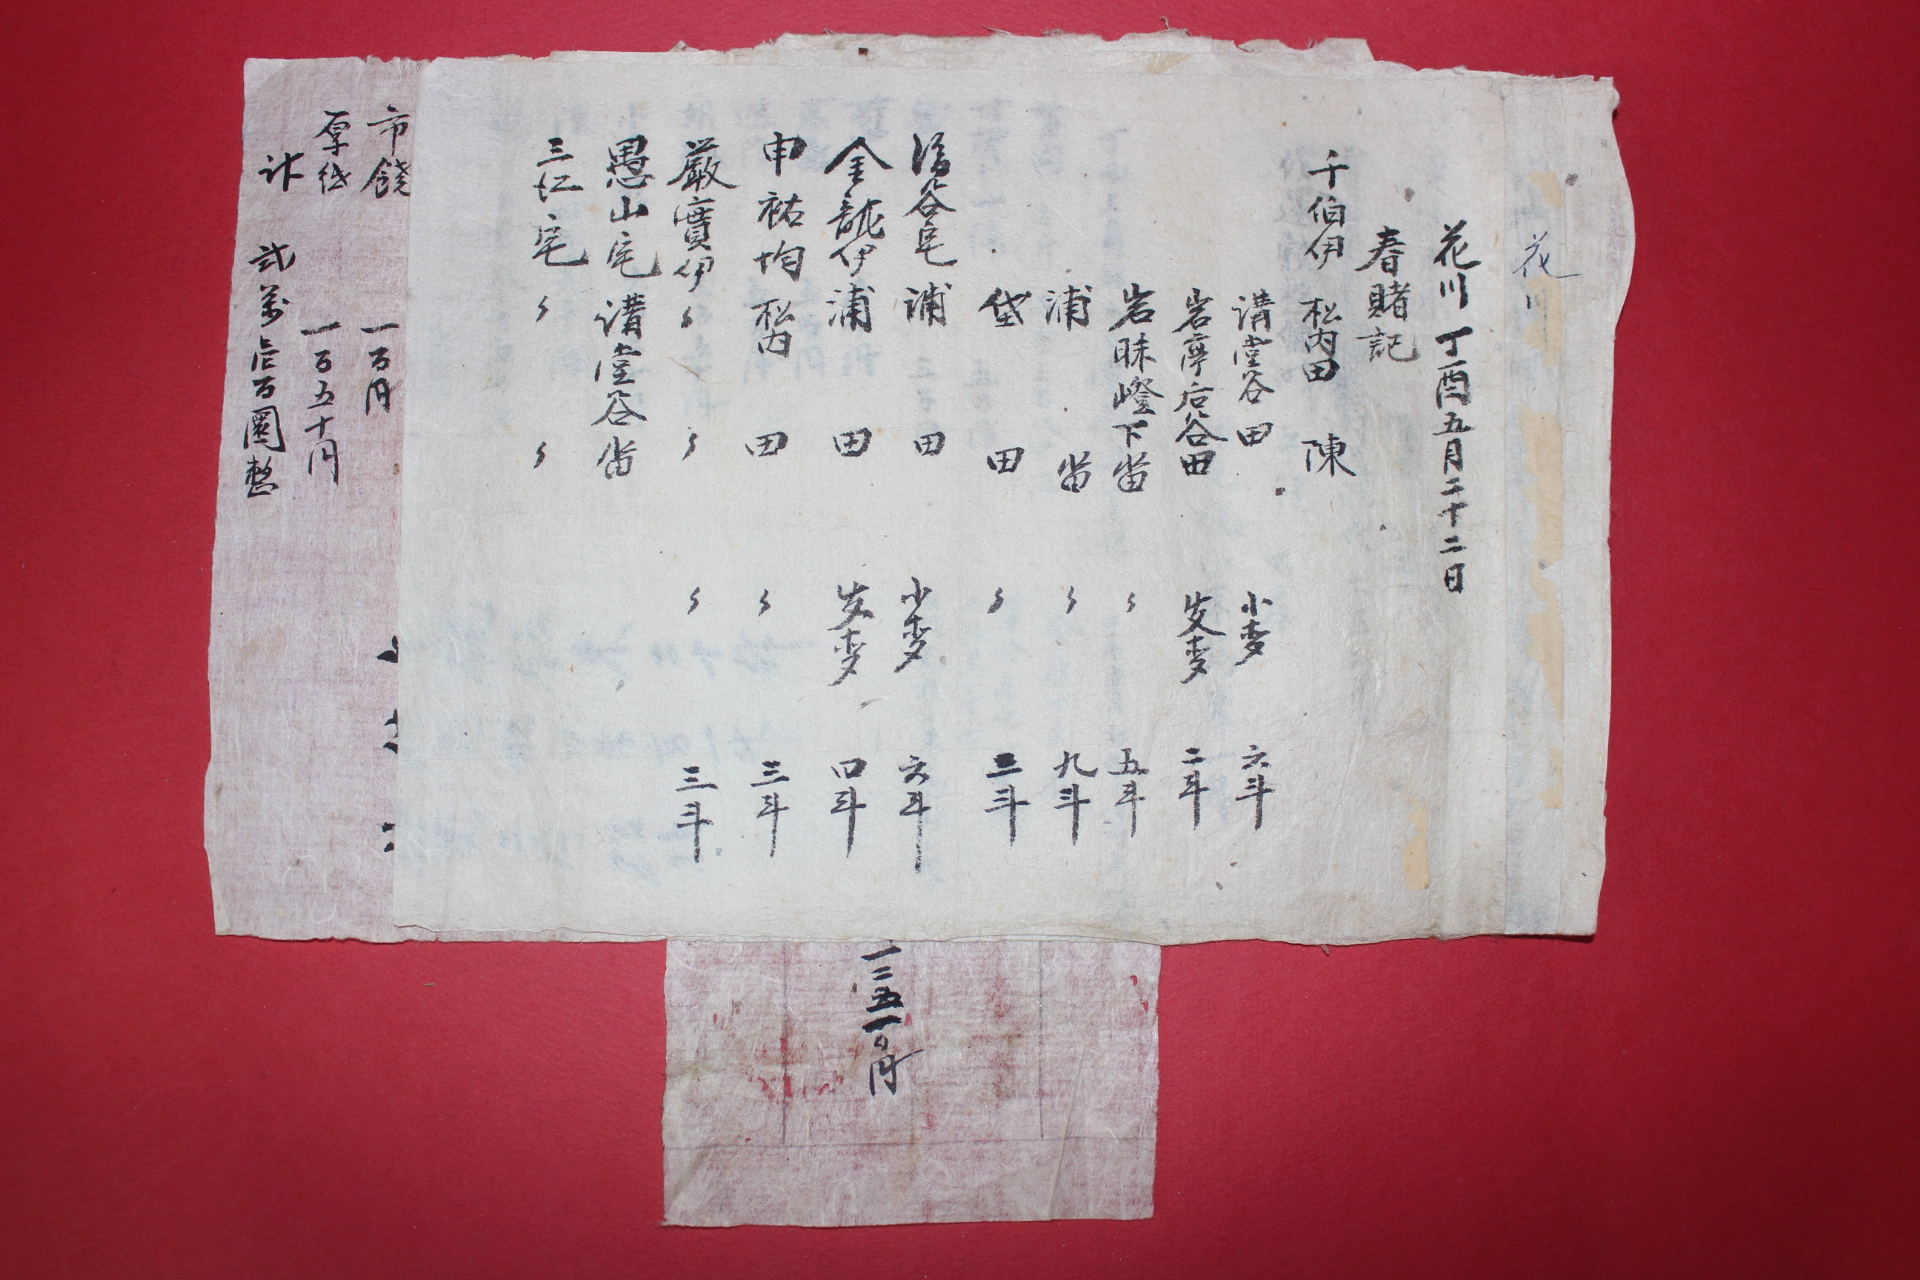 花川
花川 丁酉五月二十二日
春賭記
千伯伊 松內田 陳
講堂谷田 小麥 六斗
岩亭后谷田 皮麥 二斗
岩昧嶝下畓 〻 五斗
浦 畓 〻 九斗
垈 田 〻 三斗
谷宅 浦 田 小麥 六斗
金龍伊 浦 田 皮麥 四斗
申祐均 松內 田 〻 三斗
嚴實伊 〻 〻 〻 三斗
愚山宅 講堂谷畓
三仁宅 〻 〻
市饒 一百円
厚紙 一百五十円
計 貳萬 百圜整
一二五一0円